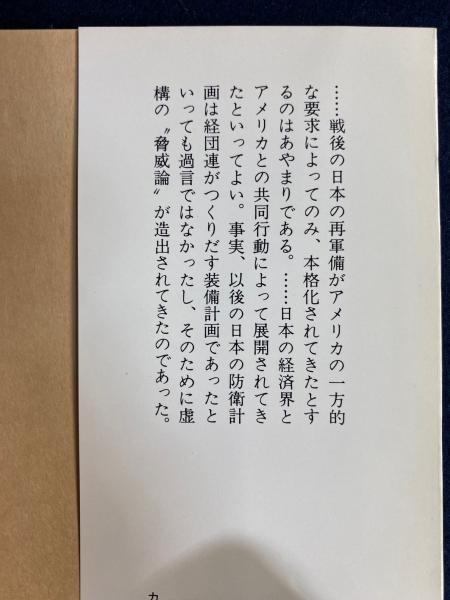 ……戦後の日本の再軍備がアメリカの一方的
な要求によってのみ、本格化されてきたとす
るのはあやまりである。……日本の経済界と
アメリカとの共同行動によって展開されてき
たといってよい。事実、以後の日本の防衛計
画は経団連がつくりだす装備計画であったと
いっても過言ではなかったし、そのために虚
構の〝脅威論〟が造出されてきたのであった。
カ